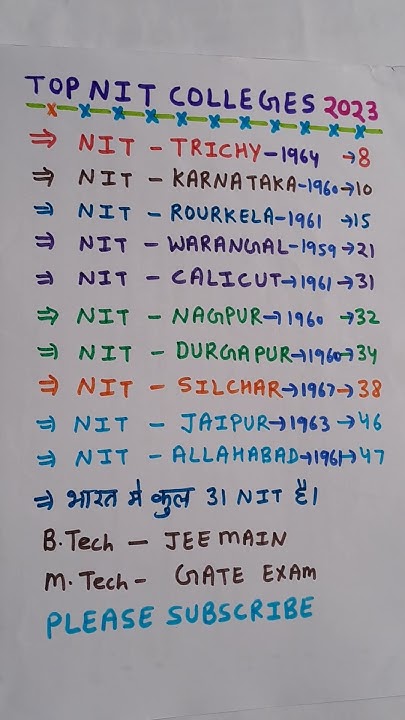 TOP NIT COLLEGES 2023
⇒ NIT - TRICHY-1964 →8
⇒ NIT - KARNATAKA-1960→10
⇒ NIT - ROURKELA-1961 →15
⇒ NIT - WARANGAL-1959→21
⇒ NIT - CALICUT→1961→31
⇒ NIT - NAGPUR→1960 →32
⇒ NIT - DURGAPUR→1960→34
⇒ NIT - SILCHAR→1967→38
⇒ NIT - JAIPUR→1963→46
⇒ NIT - ALLAHABAD→1961→47
⇒ भारत मे कुल 31 NIT हैं।
B.Tech - JEE MAIN
M.Tech - GATE EXAM
PLEASE SUBSCRIBE